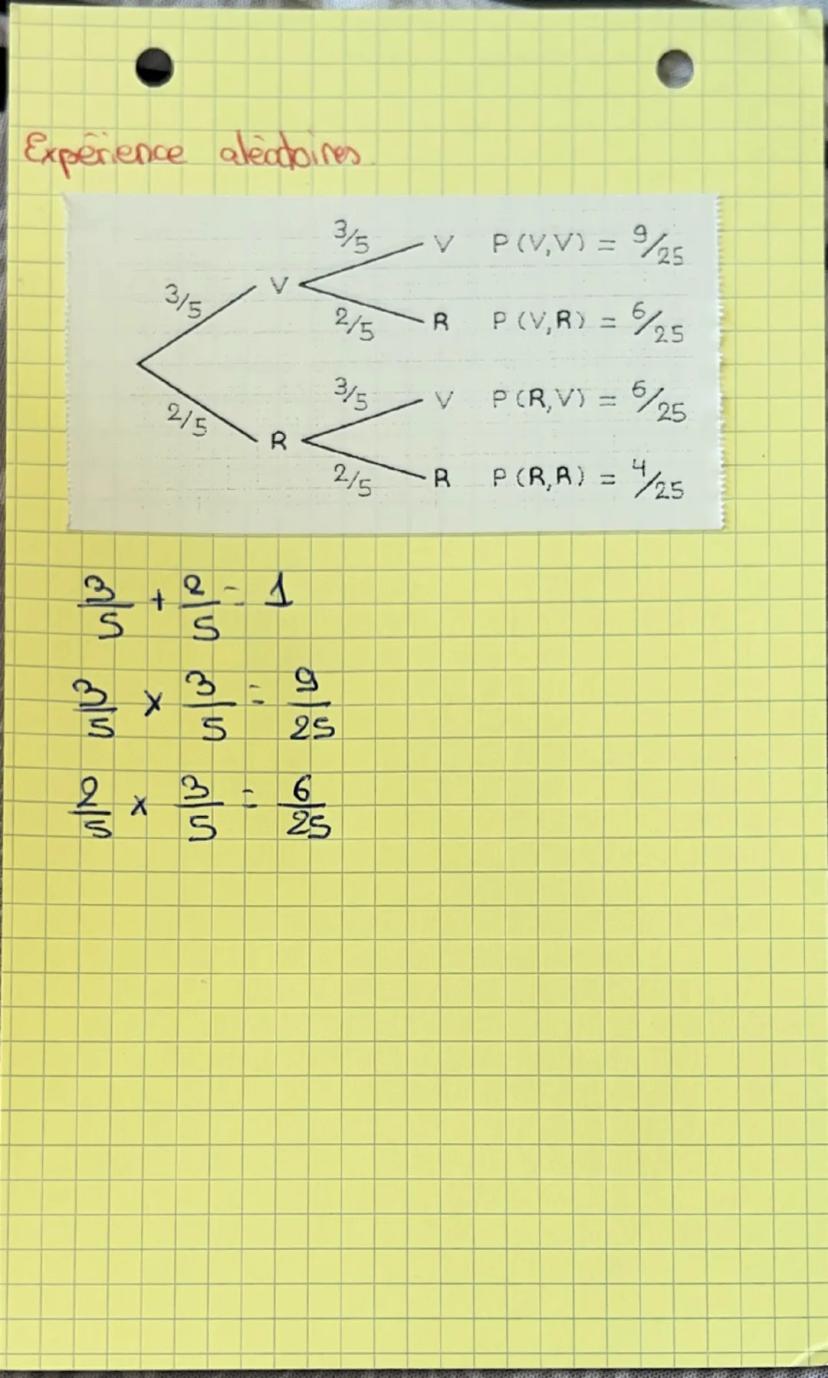 Expérience aléatoires
3/5 V P(V,V) = 9/25
3/5 V
2/5 R P(V,R) = 6/25
3/5 V P(R,V) = 6/25
2/5 R
2/5 R P(R,R) = 4/25
3/5 + 2/5 = 1
3/5 x 3/5 = 9/25
2/5 x 3/5 = 6/25